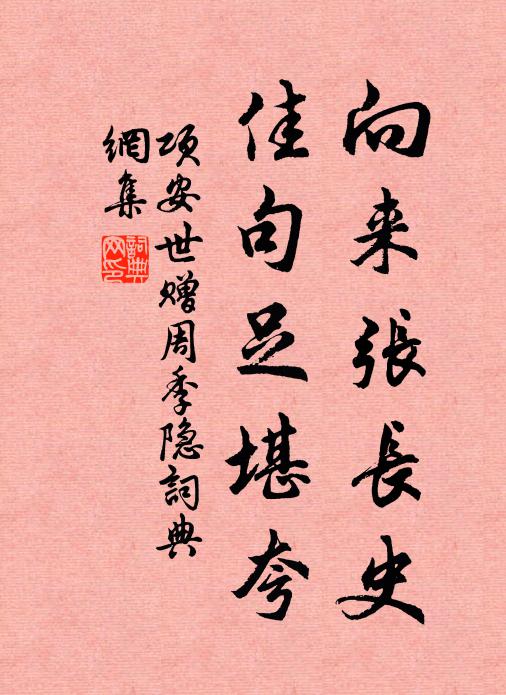 向来張長史
佳句足堪夸
项安世赠周季隐詞典
網集
詞典網印